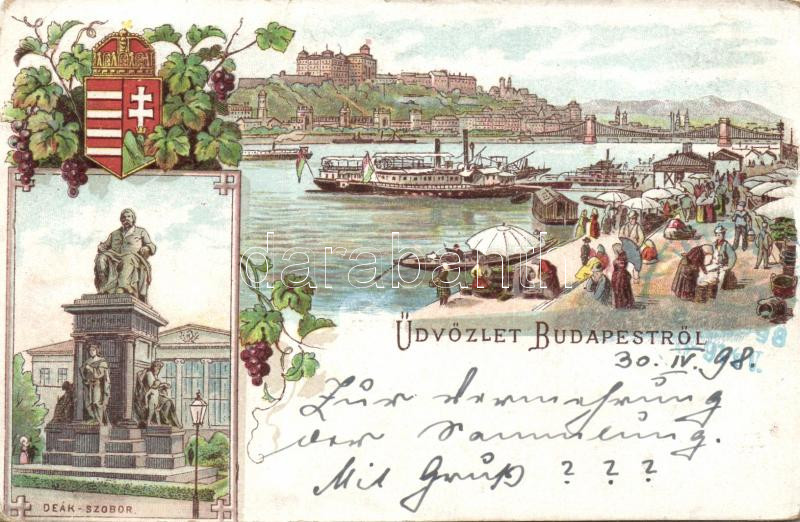 ÜDVÖZLET BUDAPESTRŐL
30. IV. 98.
Zur Vermehrung
der Sammlung.
Mit Gruß ? ? ?
DEÁK-SZOBOR.
darabanth